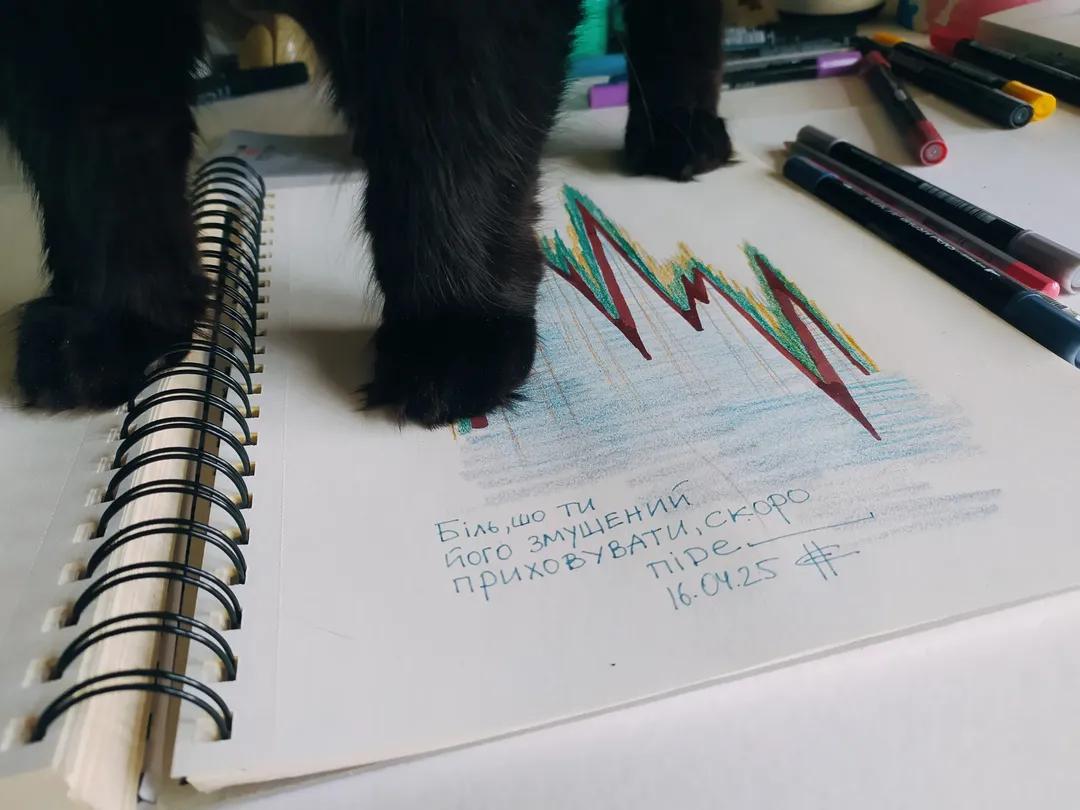 Біль, шо ти
його змушений
приховувати, скоро
піде
16.04.25